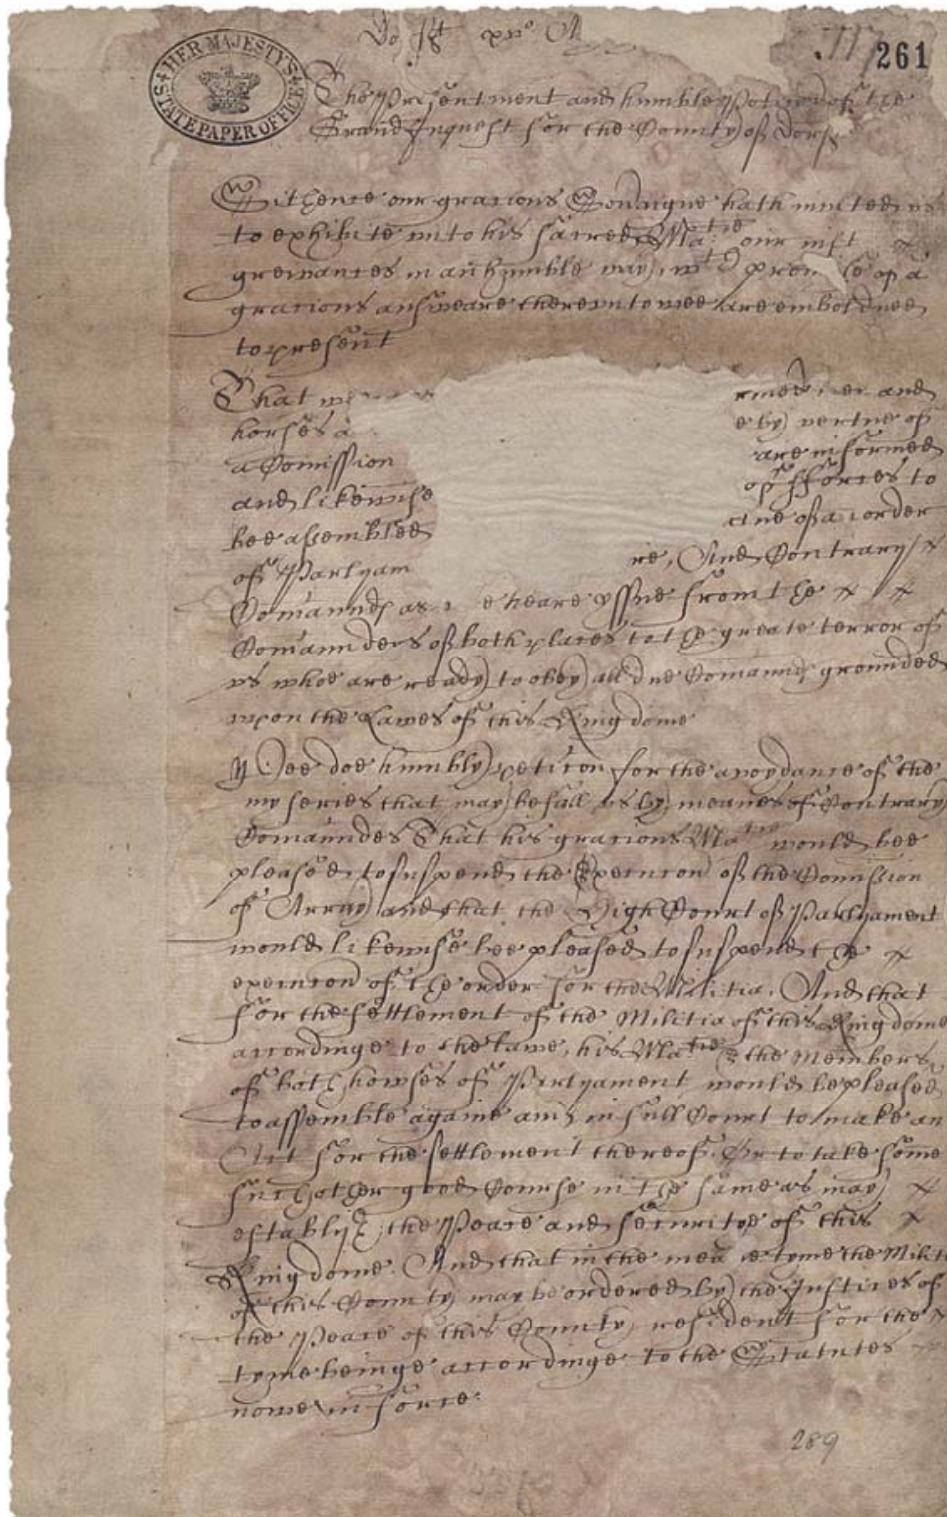 HER MAJESTY'S STATE PAPER OFFICE
261
The Presentment and humble Peticion of the
Grand Inquest for the County of Dorst
Sithence our gracious Soveraigne hath invited us
to exhibite unto his sacred Ma:tie our iust
greivances in an humble way, wth promise of a
gracious answeare thereunto wee are emboldned
to present
That
horses a by vertue of
a Comission are informed
and likewise of fforces to
bee assembled of a order
of Parlyam re, And Contrary
Comaunds as heare yssue from the
Comaunders of both places to the greate terror of
us whoe are ready to obey all due Comaunds grounded
upon the Lawes of this Kingdome
Wee doe humbly peticon for the avoydance of the
myseries that may befall us by meanes of Contrary
Comaundes That his gracious Matie would bee
pleased to suspend the Execucion of the Comission
of Array and that the High Court of Parlyament
would likewise bee pleased to suspend the
execucion of the order for the Militia. And that
for the settlement of the Militia of this Kingdome
accordinge to the lawe, his Matie & the Members
of both howses of Parlyament would be pleased
to assemble againe and in full Court to make an
Act for the settlement thereof. Or to take some
such other good Course in the same as may
establysh the Peace and securitye of this
Kingdome. And that in the meane tyme the Militi
of this County may be ordered by the Justices of
the Peace of this County resident for the
tyme beinge accordinge to the Statutes
nowe in force.
289